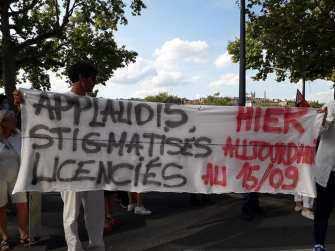 APPLAUDIS, HIER
STIGMATISÉS, AUJOURD'HUI
LICENCIÉS AU 15/09